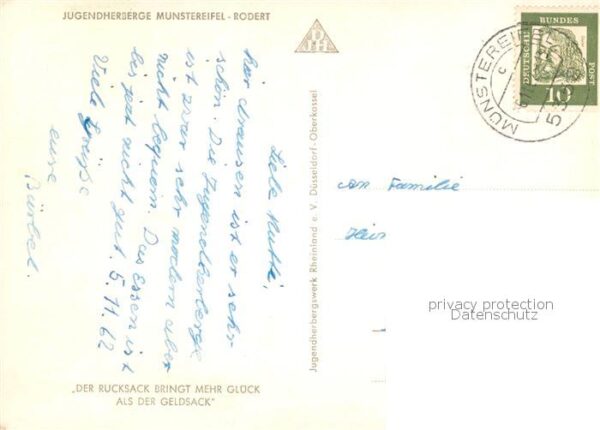 JUGENDHERBERGE MÜNSTEREIFEL - RODERT
DJH
Liebe Mutti,
hier draussen ist es sehr
schön. Die Jugendherberge
ist zwar sehr modern aber
nicht bequem. Das Essen ist
bis jetzt nicht gut. 5.11.62
Viele Grüße
eure
Bärbel.
„DER RUCKSACK BRINGT MEHR GLÜCK
ALS DER GELDSACK"
Jugendherbergswerk Rheinland e. V. Düsseldorf-Oberkassel
MÜNSTEREIFEL
c
DEUTSCHE
BUNDES
POST
10
an Familie
privacy protection
Datenschutz